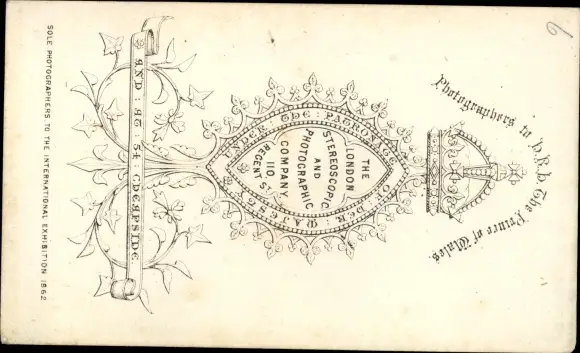 Photographers to H.R.H. The Prince of Wales.
UNDER : THE : PATRONAGE : OF : HER : MAJESTY
THE
LONDON
STEREOSCOPIC
AND
PHOTOGRAPHIC
COMPANY
110,
REGENT ST.
AND : AT 54 : CHEAPSIDE
SOLE PHOTOGRAPHERS TO THE INTERNATIONAL EXHIBITION 1862